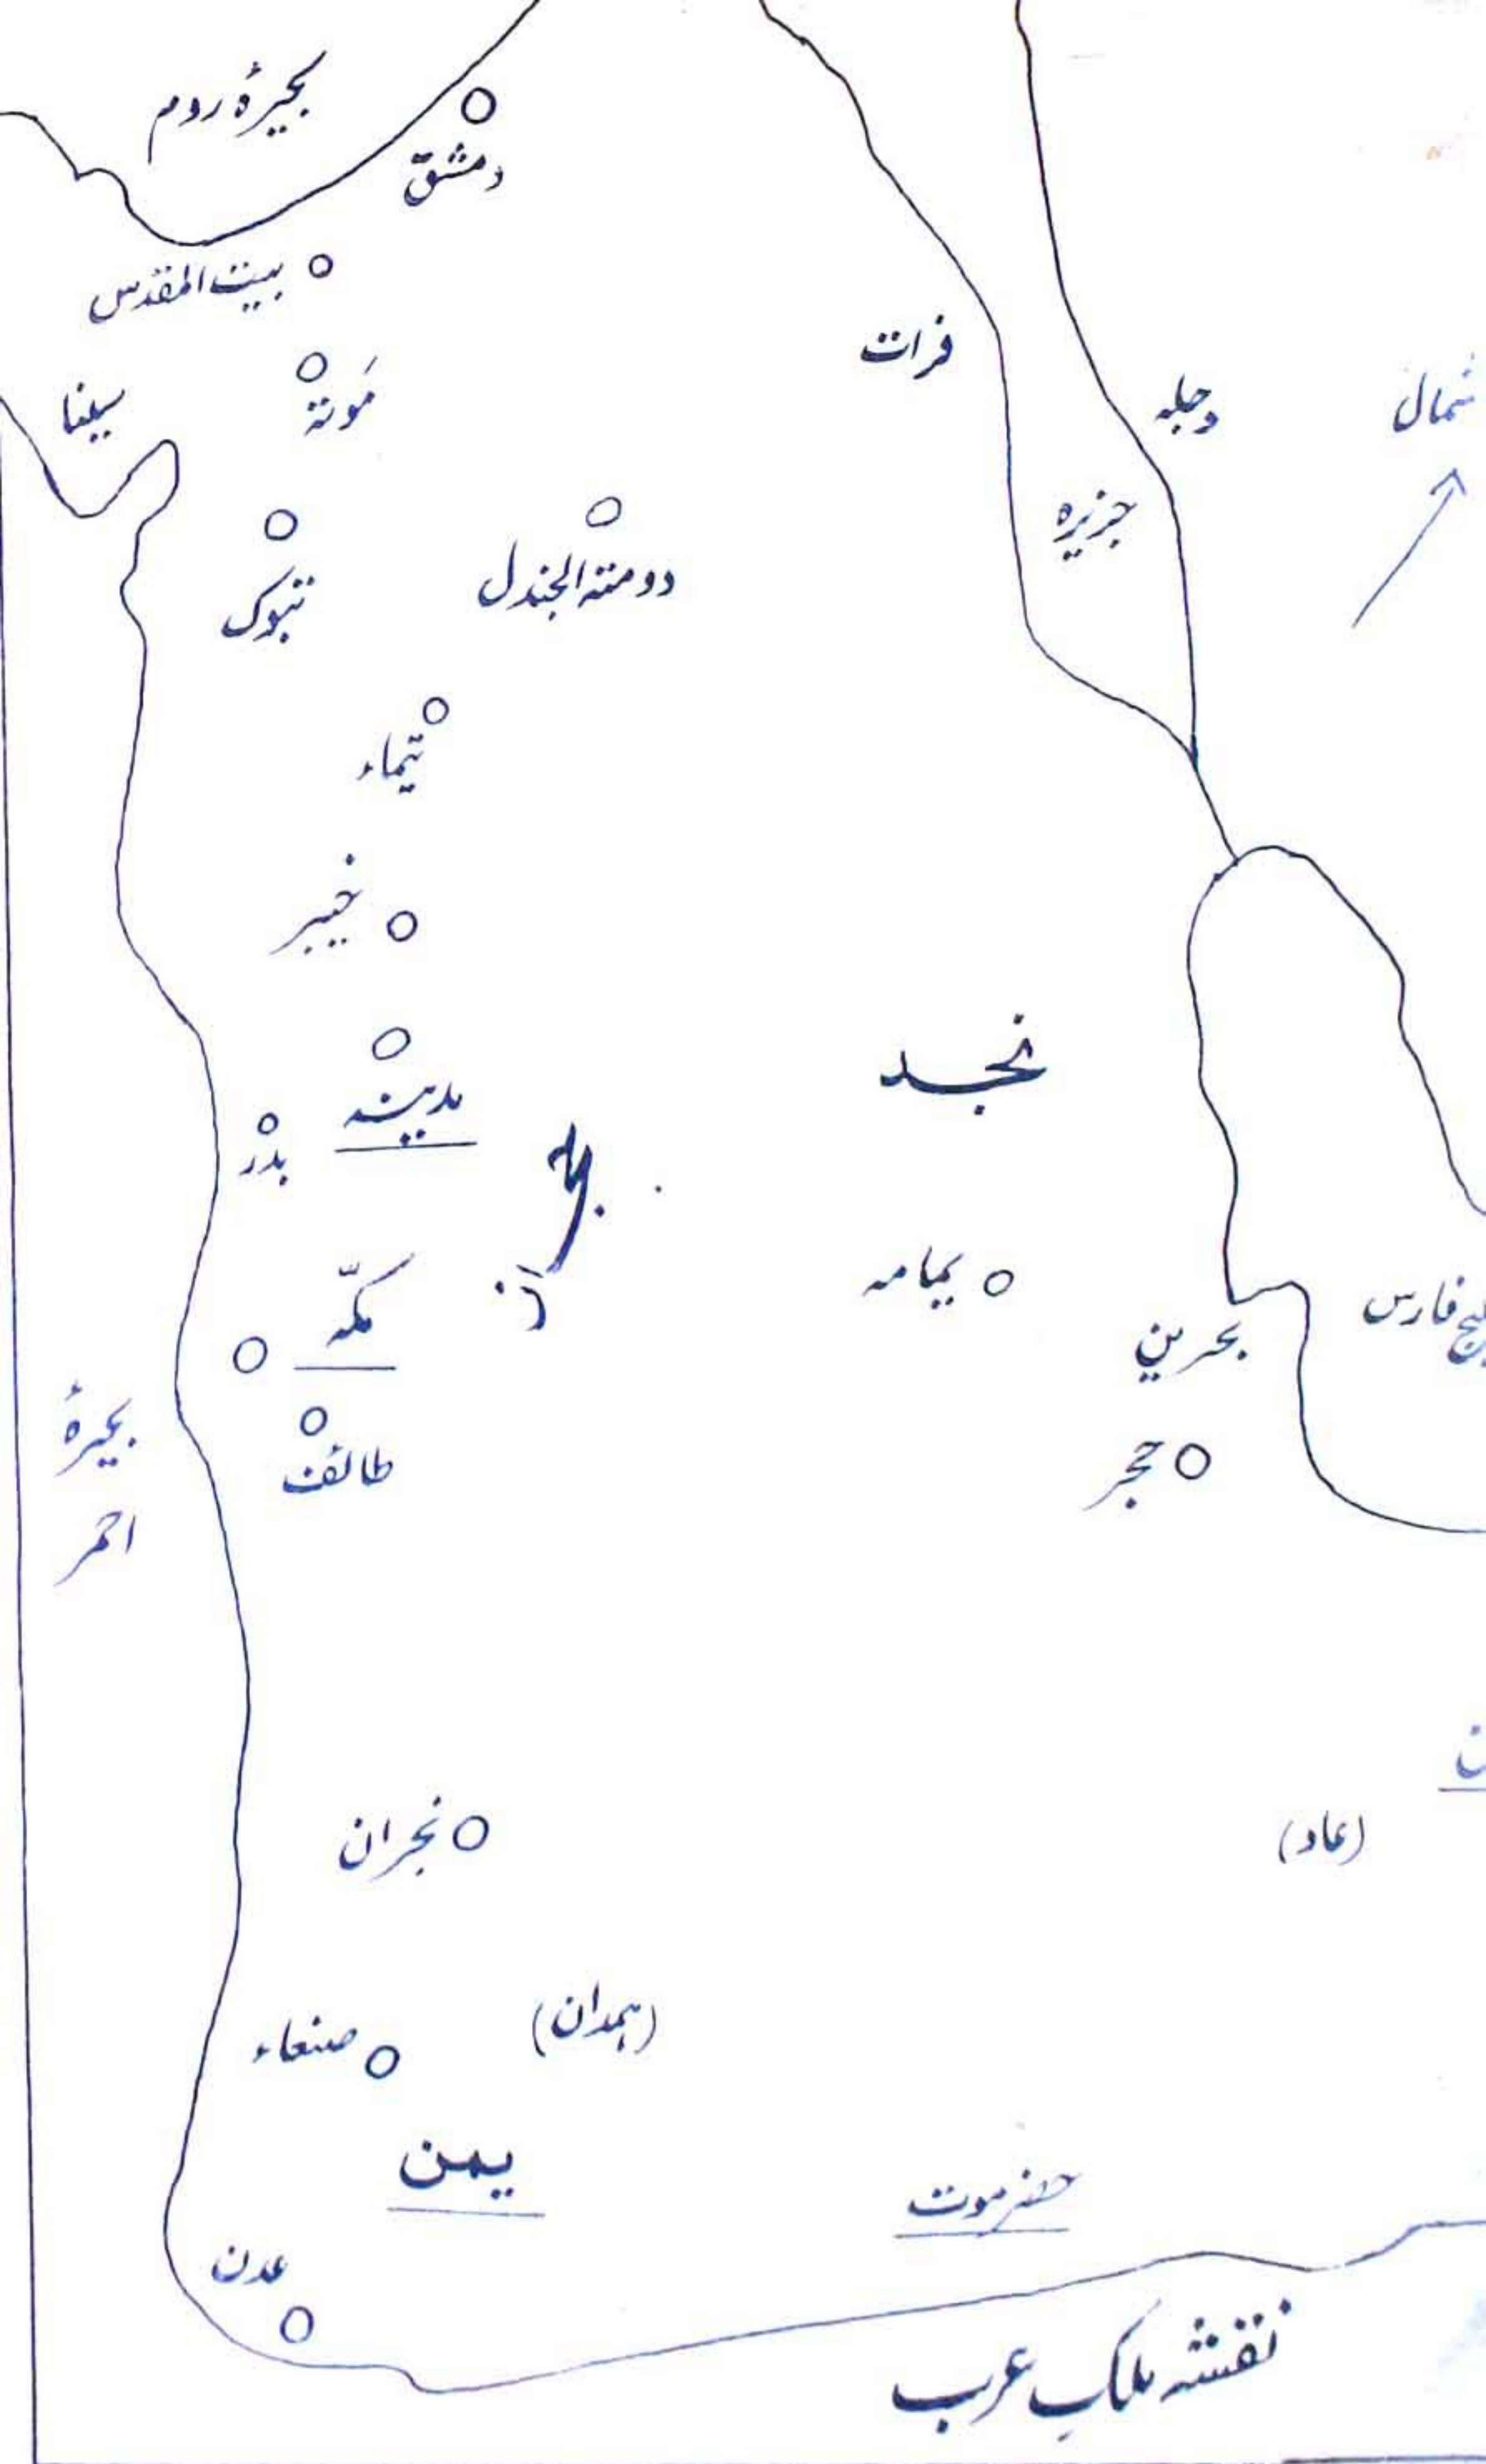 بحیرۂ روم
دمشق
بیت المقدّس
مَوتة
سینا
فرات
دجلہ
شمال
جزیرہ
تبوک
دومتہ الجندل
تیماء
خیبر
مدینہ
بدر
نجد
حجاز
مکّہ
یمامہ
بحرین
فارس
طائف
حجر
بحیرۂ
احمر
نجران
(عاد)
صنعاء
(ہمدان)
یمن
حضرموت
عدن
نقشہ ملکِ عرب